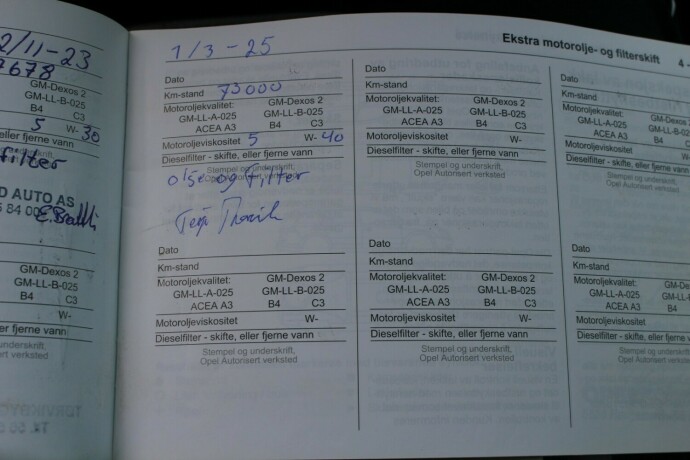 2/11-23
2678
GM-Dexos 2
GM-LL-B-025
B4 C3
5 W- 30
eller fjerne vann
filter
D AUTO AS
5 84 00
C3
eller fjerne vann
underskrift,
sert verksted
Ekstra motorolje- og filterskift 4 -
1/3-25
Dato
Km-stand 73000
Motoroljekvalitet: GM-Dexos 2
GM-LL-A-025 GM-LL-B-025
ACEA A3 B4 C3
Motoroljeviskositet 5 W- 40
Dieselfilter - skifte, eller fjerne vann
Stempel og underskrift,
Opel Autorisert verksted
olje og Filter
Dato
Km-stand
Motoroljekvalitet: GM-Dexos 2
GM-LL-A-025 GM-LL-B-025
ACEA A3 B4 C3
Motoroljeviskositet W-
Dieselfilter - skifte, eller fjerne vann
Stempel og underskrift,
Opel Autorisert verksted
Dato
Km-stand
Motoroljekvalitet: GM-Dexos 2
GM-LL-A-025 GM-LL-B-025
ACEA A3 B4 C3
Motoroljeviskositet W-
Dieselfilter - skifte, eller fjerne vann
Stempel og underskrift,
Opel Autorisert verksted
Dato
Km-stand
Motoroljekvalitet: GM-Dexos 2
GM-LL-A-025 GM-LL-B-025
ACEA A3 B4 C3
Motoroljeviskositet W-
Dieselfilter - skifte, eller fjerne vann
Stempel og underskrift,
Opel Autorisert verksted
Dato
Km-stand
Motoroljekvalitet:
GM-LL-A-025
ACEA A3 B4
Motoroljeviskositet
Dieselfilter - skifte, eller fje
Stempel og underskrift,
Opel Autorisert verksted
Dato
Km-stand
Motoroljekvalitet:
GM-LL-A-025
ACEA A3
Motoroljeviskositet
Dieselfilter - skifte, eller
Stempel og underskrift,
Opel Autorisert verksted